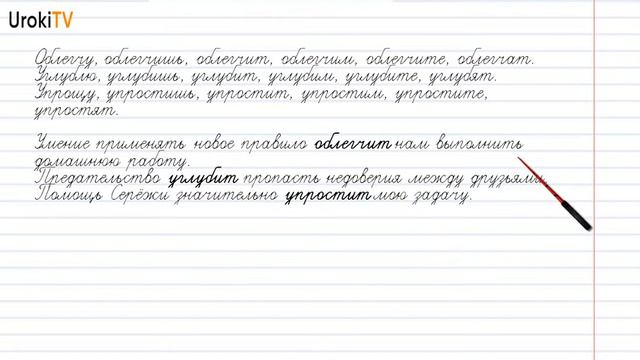 UrokiTV
Облегчу, облегчишь, облегчит, облегчим, облегчите, облегчат.
Углублю, углубишь, углубит, углубим, углубите, углубят.
Упрощу, упростишь, упростит, упростим, упростите,
упростят.
Умение применять новое правило облегчит нам выполнить
домашнюю работу.
Предательство углубит пропасть недоверия между друзьями.
Помощь Серёжи значительно упростит мою задачу.